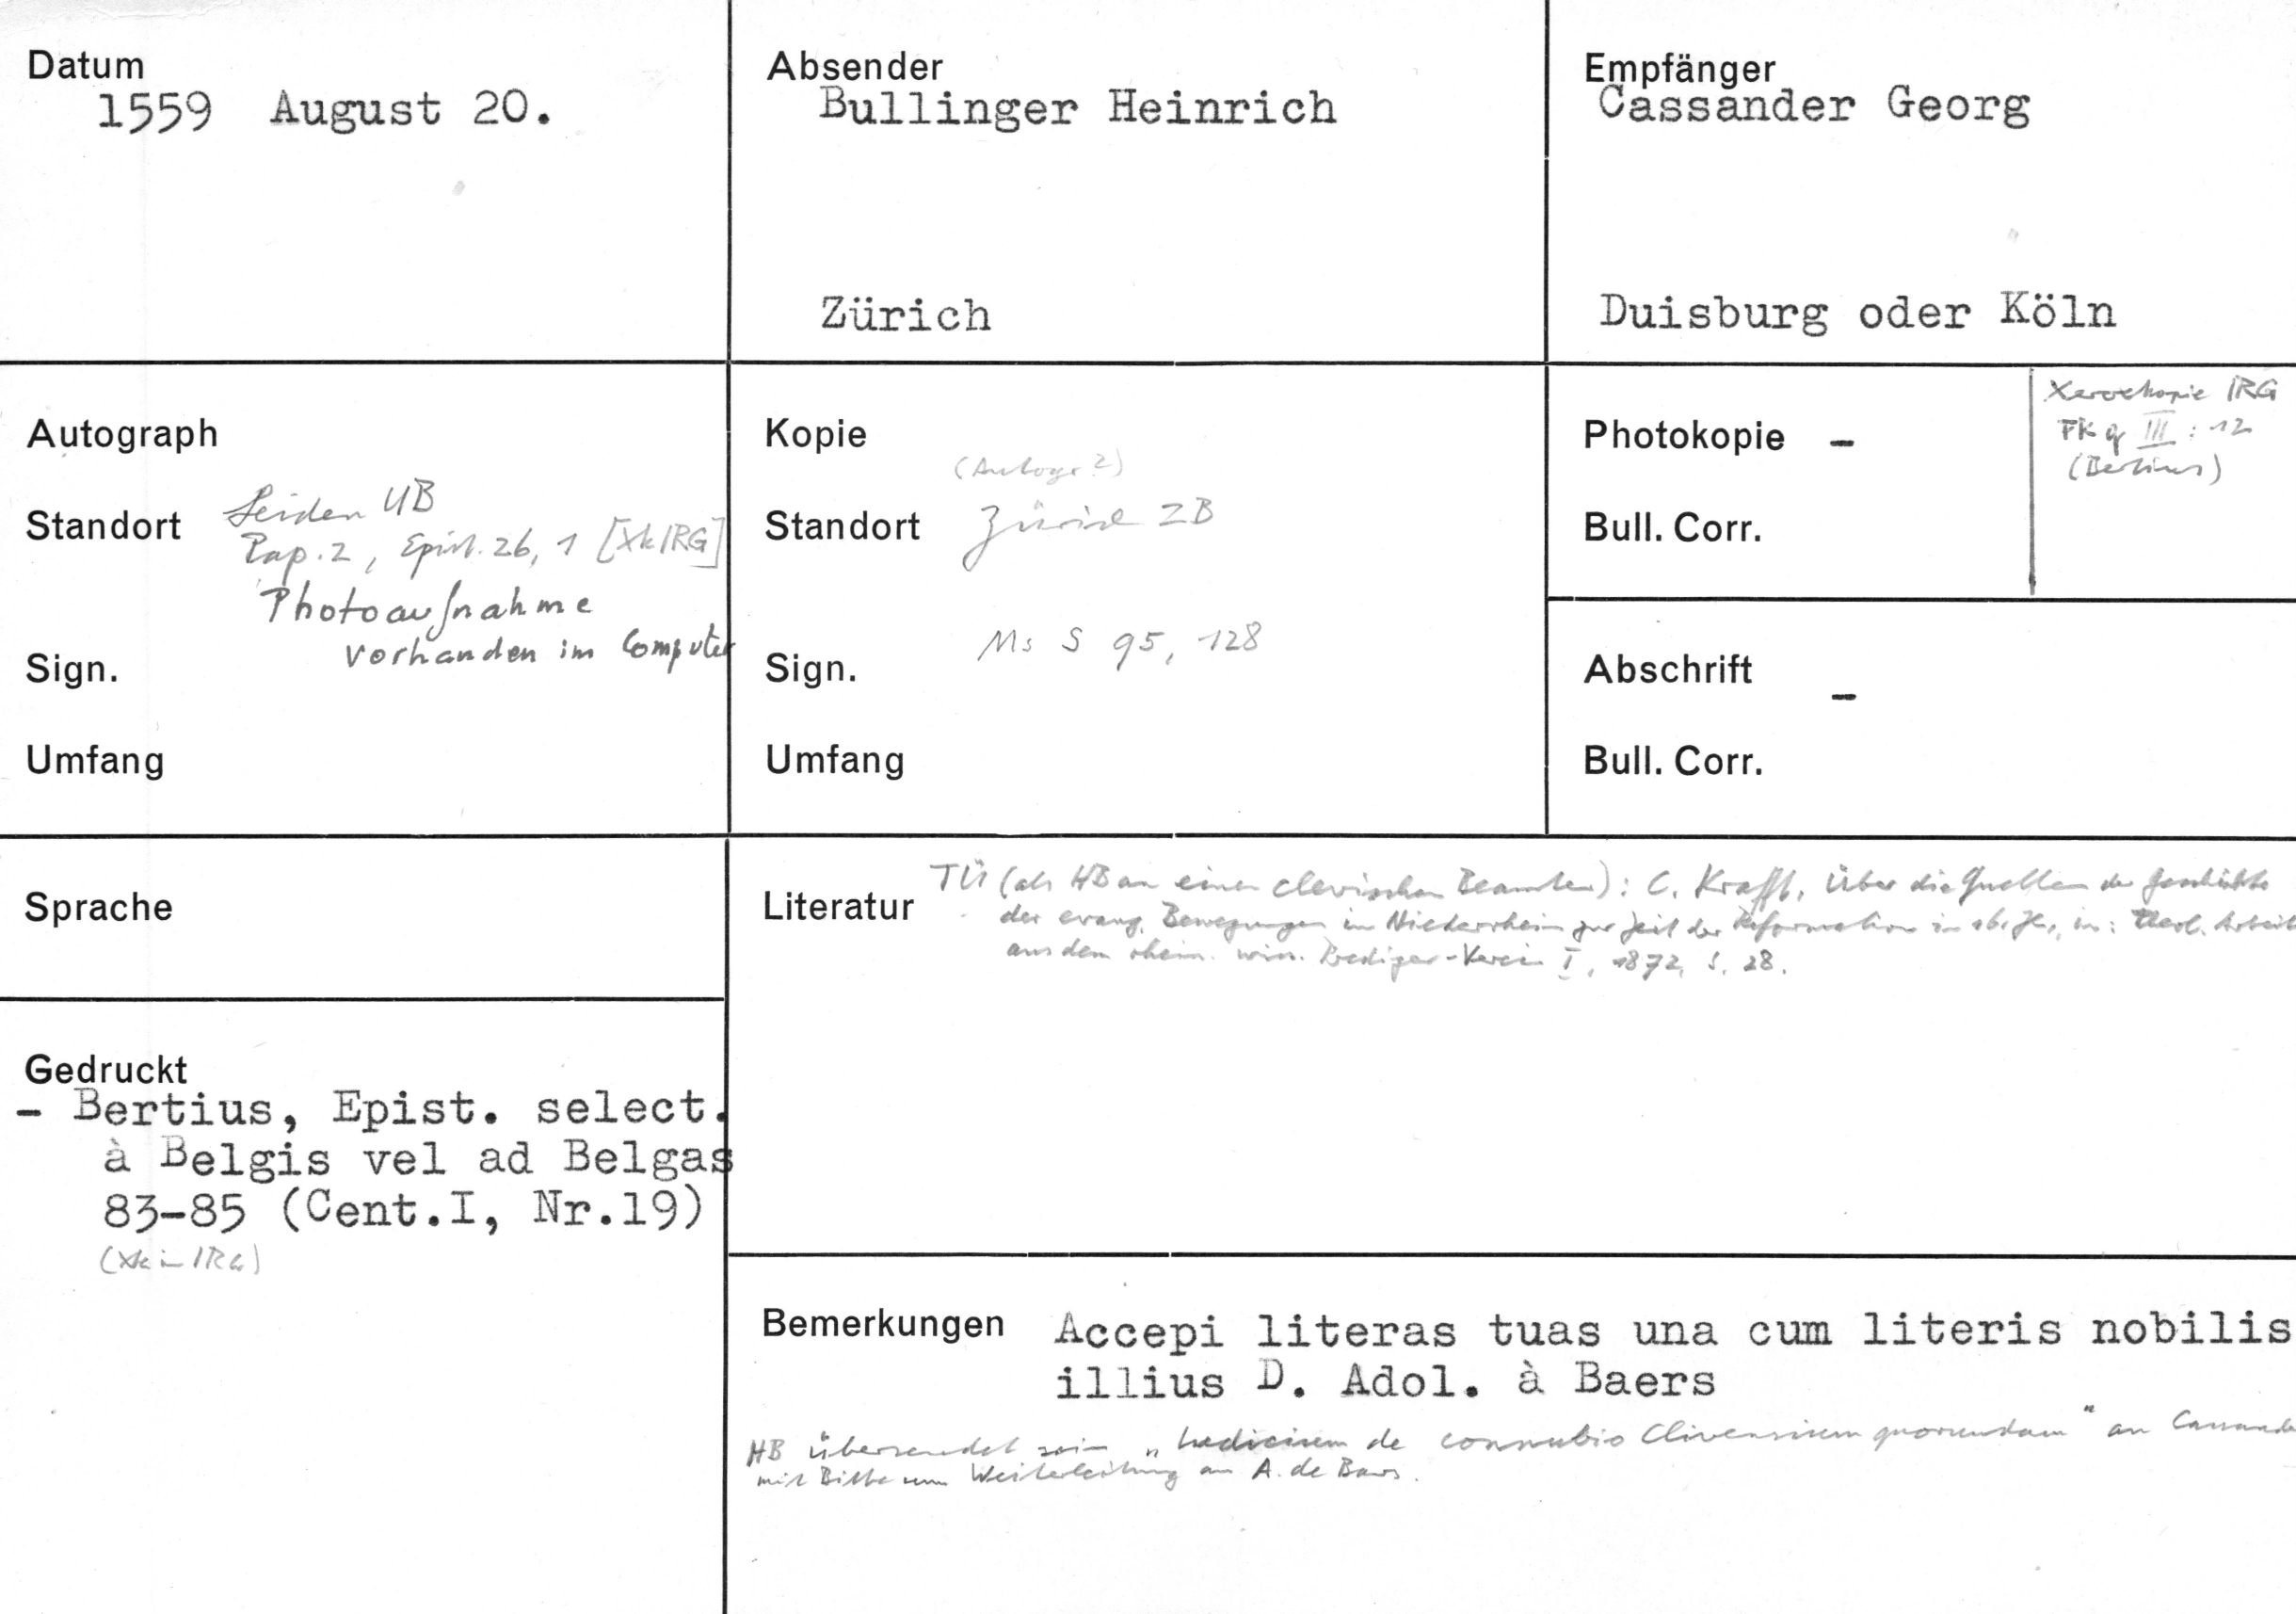 Datum
1559 August 20.
Absender
Bullinger Heinrich
Zürich
Empfänger
Cassander Georg
Duisburg oder Köln
Autograph
Standort Leiden UB
Pap. 2, Epist. 26, 1 [Xk IRG]
Photoaufnahme
vorhanden im Computer
Sign.
Umfang
Kopie
(Autogr?)
Standort Zürich ZB
Sign. Ms S 95, 128
Umfang
Photokopie –
Bull. Corr.
Xerokopie IRG
FK q III : 12
(Bertius)
Abschrift –
Bull. Corr.
Sprache
Literatur TÜ (als HB an einen clevischen Beamten): C. Krafft, Über die Quellen der Geschichte
der evang. Bewegungen im Niederrhein zur Zeit der Reformation im 16. Jh., in: theol. Arbeit
aus dem rhein. wiss. Prediger-Verein I, 1872, S. 28.
Gedruckt
– Bertius, Epist. select.
à Belgis vel ad Belgas
83-85 (Cent.I, Nr.19)
(Xk in IRG)
Bemerkungen Accepi literas tuas una cum literis nobilis
illius D. Adol. à Baers
HB übersendet sein " de connubio Clivensium quorundam" an Cassande
mit Bitte um Weiterleitung an A. de Baers.